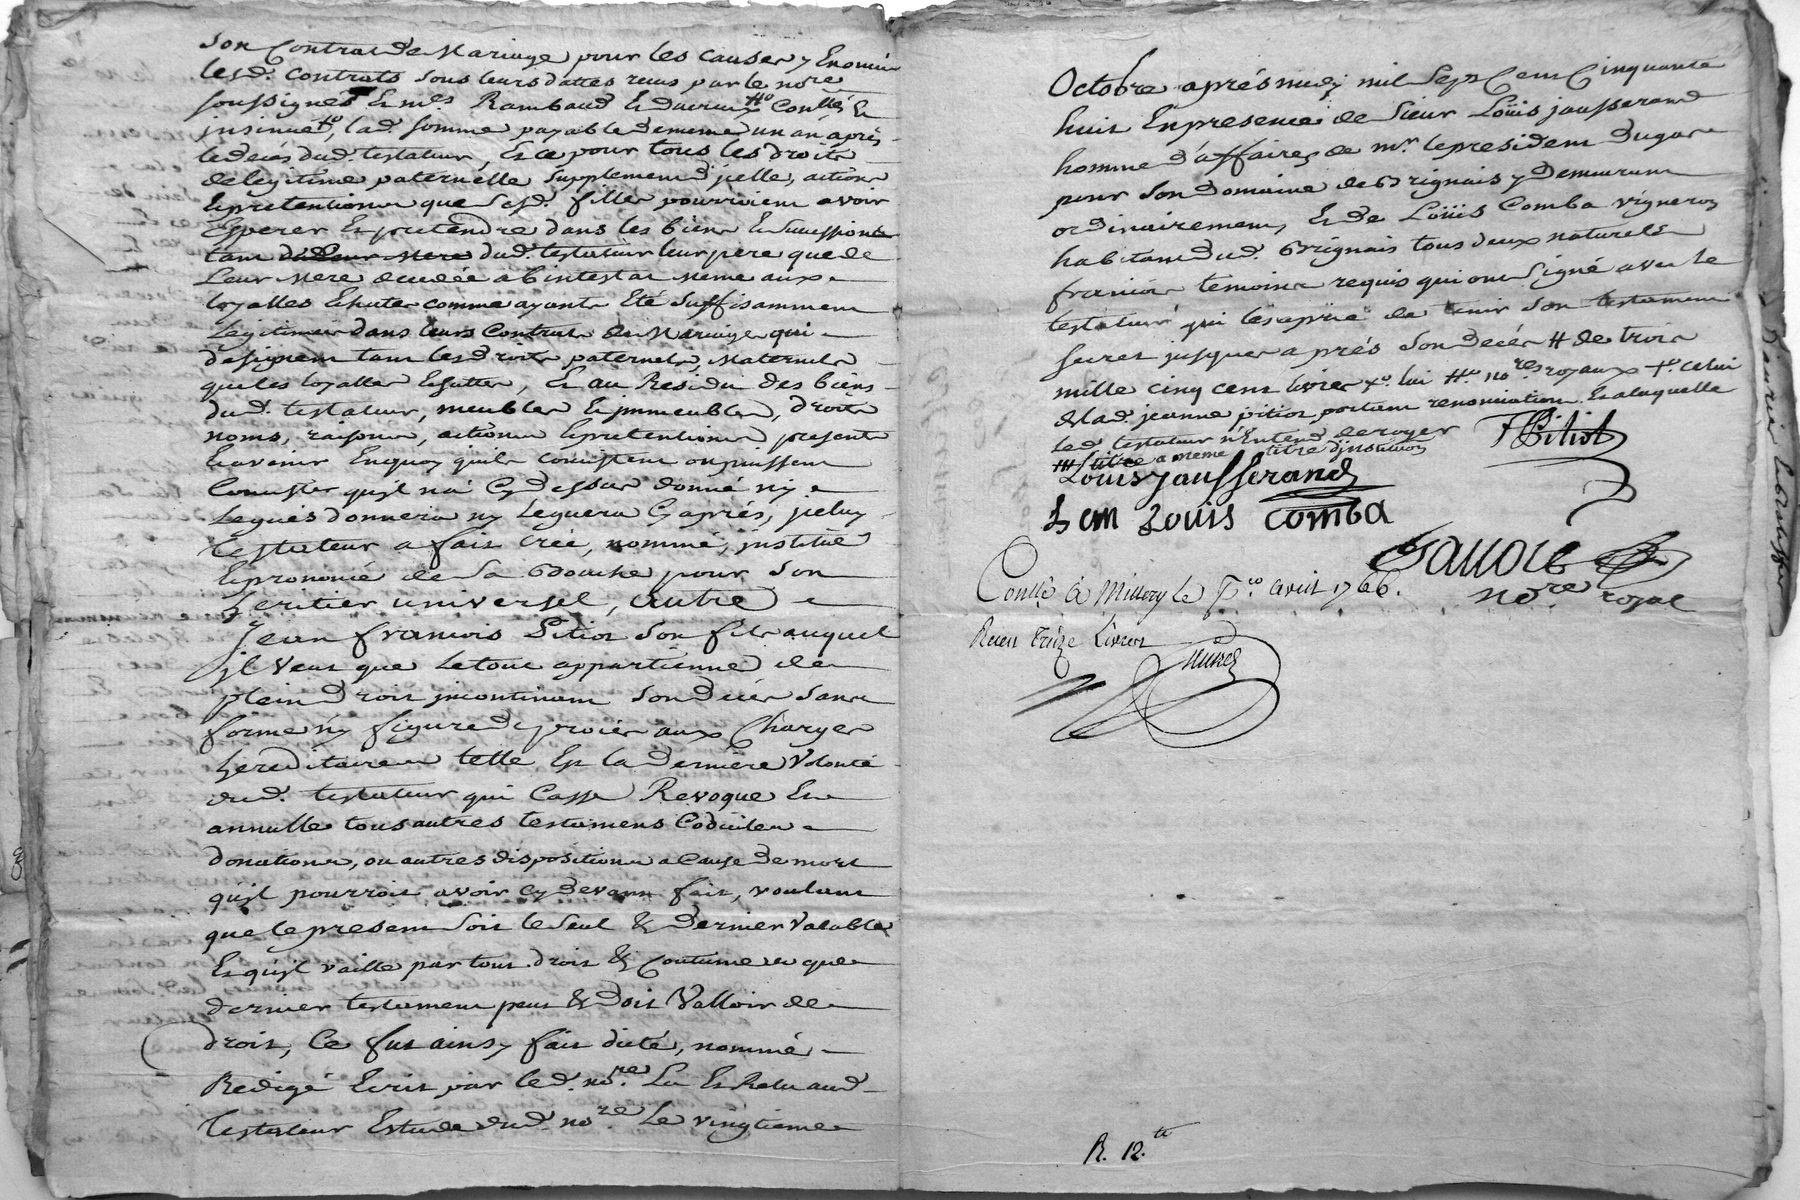 Son Contrat de Mariage pour les causes y Enoncée
lesd. contrats sous leurs dattes reçus par le no.re
soussignés Et m.es Rambaud Et ducreux #o Conllés Et
insinués +o, lad. somme payable de meme un an après
le deces dud. testateur, Et ce pour tous les droits
de legitime paternelle supplement d'jcelle, actions
Et pretentions que sesd. filles pourroient avoir
Esperer Et pretendre dans les biens Et successions
tant de Leur Mere dud. testateur leur pere que de
Leur Mere decedée abintestat meme aux
loyalles Echutes comme ayants Eté suffisamment
Legitimées dans leurs Contrats de Mariage qui
designent tant les droits paternels, Maternels
que les loyalles Echuttes, Et au Residu des biens
dud. testateur, meubles Et jmmeubles, droits
noms, raisons, actions Et pretentions presents
Et avenir En quoy qu'ils consistent ou puissent
Consister qu'jl n'a Cy dessus donné ny
Legués donnera ny Léguera Cy après, jceluy
testateur a fait créé, nommé, jnstitué
Et prononcé de sa Bouche pour son
heritier universel, autre
Jean françois Pitiot son fils auquel
jl veut que Le tout appartienne de
plein droit jncontinent son deces sans
forme ny figure de procès aux Charges
hereditaires telle Est la derniere Volonté
dud. testateur qui Casse Revoque Et
annulle tous autres testamens Codiciles
donations, ou autres dispositions a Cause de mort
qu'jl pourroit avoir cy devant fait, voulant
que le present soit le seul & dernier Valable
Et qu'jl vaille par tout droit & Coutume et que
dernier testament peut & doit Valloir de
droit, Ce fut ainsy fait dicté, nommé
Redigé Ecrit par led. no.re Lu Et Relu aud.
testateur Estude dud. no.re Le vingtieme
Octobre après midy mil sept Cent Cinquante
huit En presence de sieur Loüis jausserand
homme d'affaires de m.r le president dugas
pour son domaine de Brignais y demeurant
ordinairement, Et de Loüis Comba vigneron
habitant dud. Brignais tous deux naturels
françois temoins requis qui ont signé avec le
testateur qui les a prié de tenir son testament
secret jusques après son deces # de trois
mille cinq cent livres +o. lui #o. no.res royaux +o. celui
de lad. jeanne pitiot portant renonciation Et a laquelle
led. testateur n'Entend deroger
a meme titre d'jnstitution
F Pitiot
Louis Jausserand
Louis Comba
no.re royal
Conllé à Millery le avril 1766.
Recu treize Livres
R. 12.tt